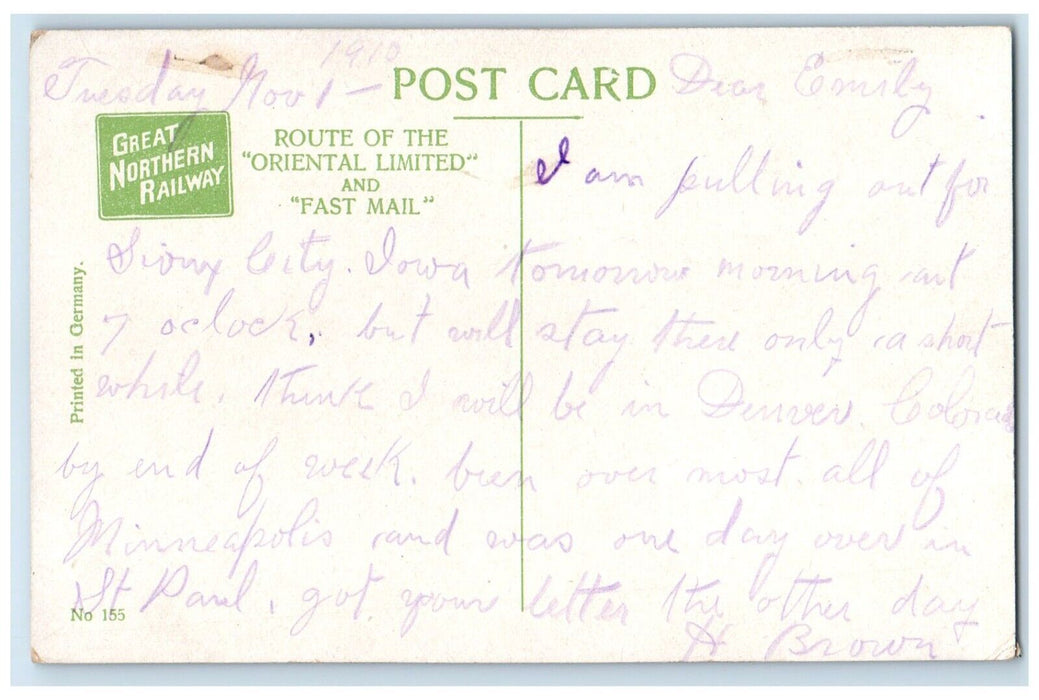 1910
Tuesday Nov 1 — POST CARD Dear Emily
GREAT
NORTHERN
RAILWAY
ROUTE OF THE
"ORIENTAL LIMITED"
AND
"FAST MAIL"
I am pulling out for
Sioux City. Iowa tomorrow morning at
7 oclock, but will stay there only a short
while. think I will be in Denver. Colorado
by end of week. been over most all of
Minneapolis and was one day over in
St Paul. got your letter the other day
H Brown
Printed in Germany.
No 155